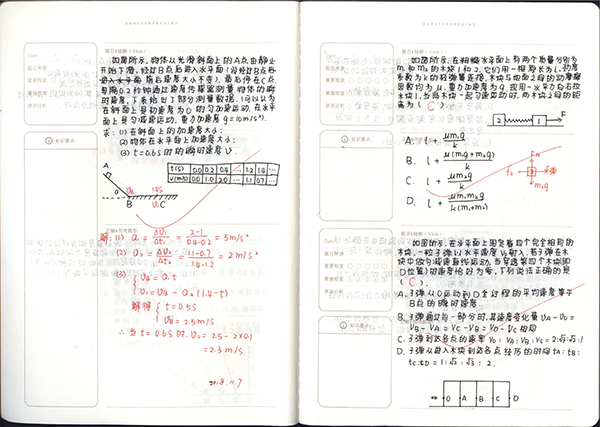 如图所示,物体从光滑斜面上的A点由静止
开始下滑,经过B点后进入水平面(设经过B点后
进入水平面前后速度大小不变),最后停在C点.
每隔0.2秒钟通过速度传感器测量物体的瞬
时速度,下表给出了部分测量数据.(可以认为
物体在斜面上是匀变速运动,在水平
面上是匀减速运动,重力加速度g=10m/s²).
求:(1)在斜面上的加速度大小;
(2)物体在水平面上加速度大小;
(3) t=0.6s时的瞬时速度 v.
t(s) 0.0 0.2 0.4 … 1.2 1.4 …
v(m/s) 0.0 1.0 2.0 … 1.1 0.7 …
A
a
B C
解:(1) a₁ = ΔV₁/Δt₁ = (2-1)/(0.4-0.2) = 5m/s²
(2) a₂ = ΔV₂/Δt₂ = (1.1-0.7)/(1.4-1.2) = 2m/s²
(3) VB = a₁t
V₂ = VB - a₂(1.4-t)
解得 t = 0.5s
VB = 2.5m/s
∴ 当 t = 0.6s时, V₀ = 2.5-2×0.1
= 2.3m/s.
2018.11.7
如图所示,在粗糙水平面上有两个质量分别为
m₁和m₂的木块1和2,它们用一根原长为l、劲度
系数为k的轻弹簧连接,木块与地面之间的动摩擦
因数均为μ,重力加速度为g,现用一水平力向右拉
木块1,当两木块一起匀速运动时,两木块之间的距
离为 ( C ).
2 1 F
A. l + μm₁g/k
B. l + μ(m₁g+m₂g)/k
C. l + μm₂g/k
D. l + μm₁m₂g/k(m₁+m₂)
FN
m₂g
如图所示,在水平面上固定着四个完全相同的
木块,一粒子弹以水平速度v₀射入,若子弹在木
块中做匀减速直线运动,当穿透第四个木块(即
D位置)时速度恰好为零,下列说法正确的是
( C ).
A. 子弹从O运动到D全过程的平均速度等于
B点的瞬时速度
B. 子弹通过每一部分时,其速度变化量 VA-V0=
VB-VA=VC-VB=VD-VC相同
C. 子弹到达各点的速率 V0:VA:VB:VC=2:√3:√2:1
D. 子弹从进入木块到达各点经历的时间 tA:tB:
tC:tD=1:√2:√3:2.
O A B C D